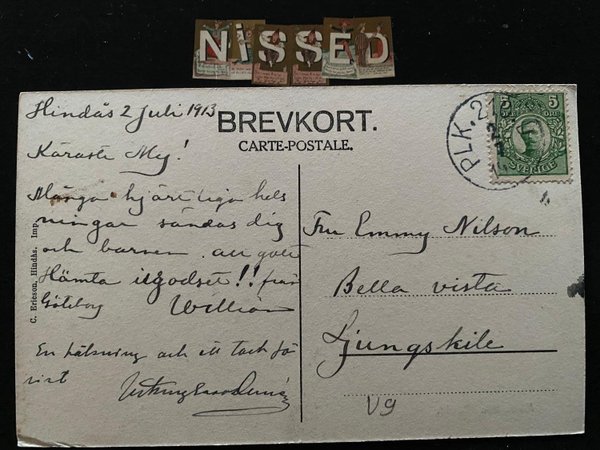 NiSSED
Hindås 2 Juli 1913
BREVKORT.
CARTE-POSTALE.
PLK. 216
5 5
SVERIGE
Käraste My!
Många hjärtliga hels
ningar sändas dig
och barnen.
Hämta ilgodset!! från
Göteborg William
En hälsning och ett tack för
sist
C. Ericson, Hindås. Imp.
Fru Emmy Nilson
Bella vista
Ljungskile
V9